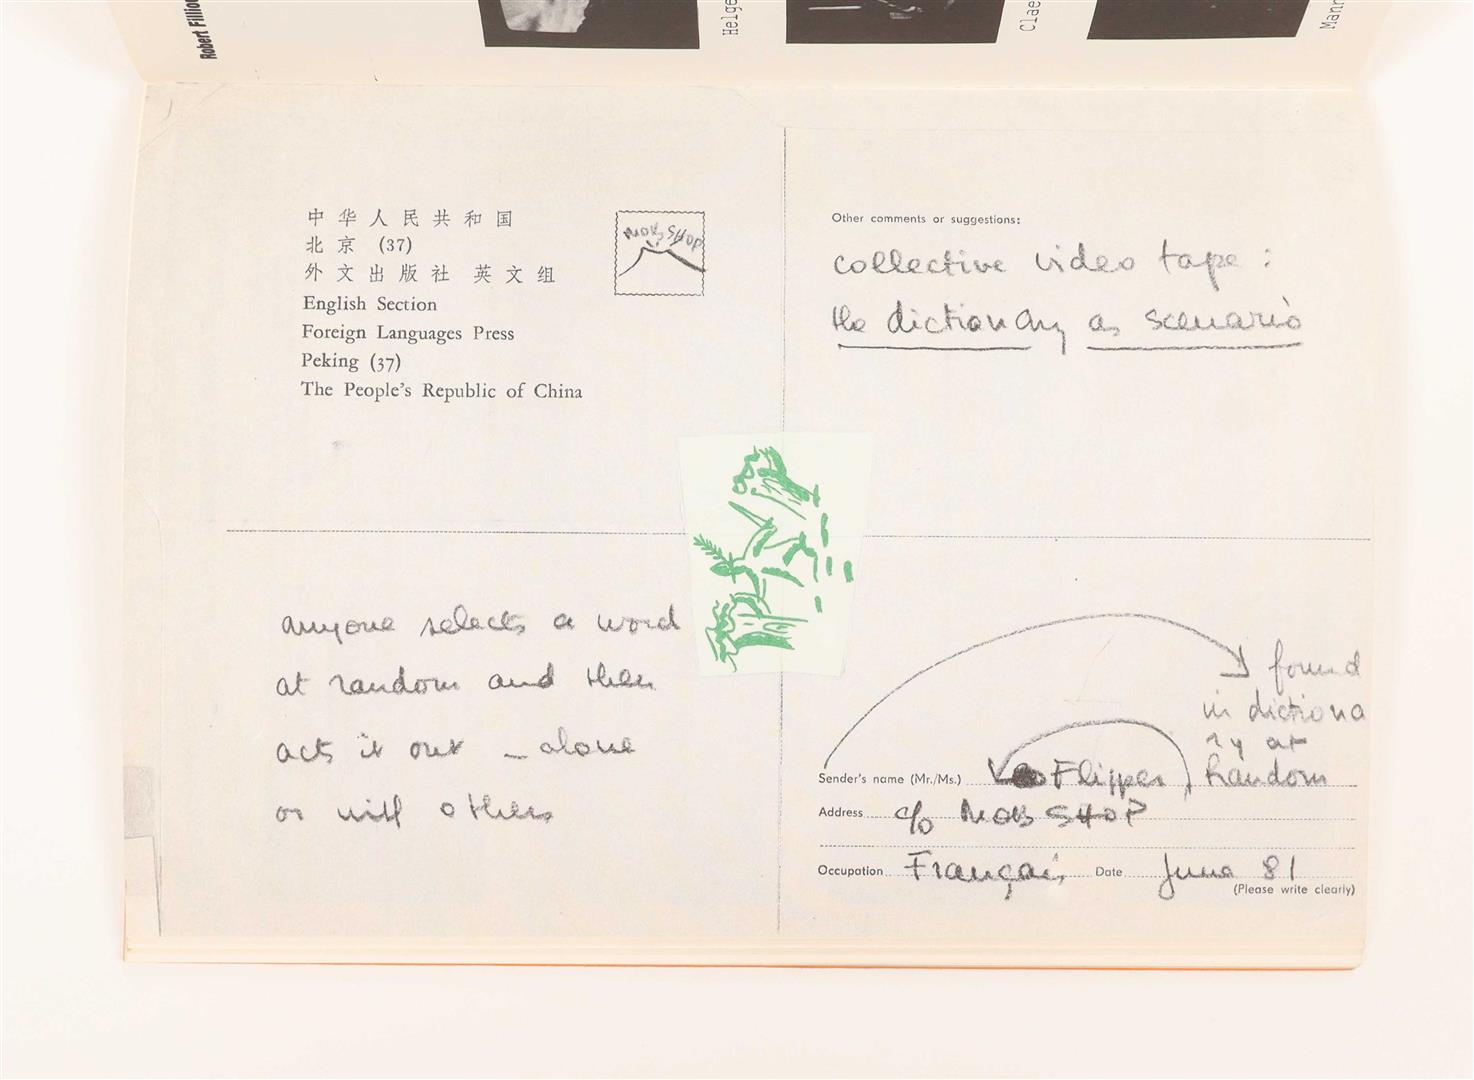 Robert Filliou
Helge
Clae
Mann
中华人民共和国
北京 (37)
外文出版社 英文组
English Section
Foreign Languages Press
Peking (37)
The People's Republic of China
MOB SHOP
Other comments or suggestions:
collective video tape :
the dictionary as scenario
anyone selects a word
at random and then
acts it out - alone
or with others
found
in dictiona
ry at
random
Sender's name (Mr./Ms.) Flipper
Address c/o MOB SHOP
Occupation Français Date June 81
(Please write clearly)